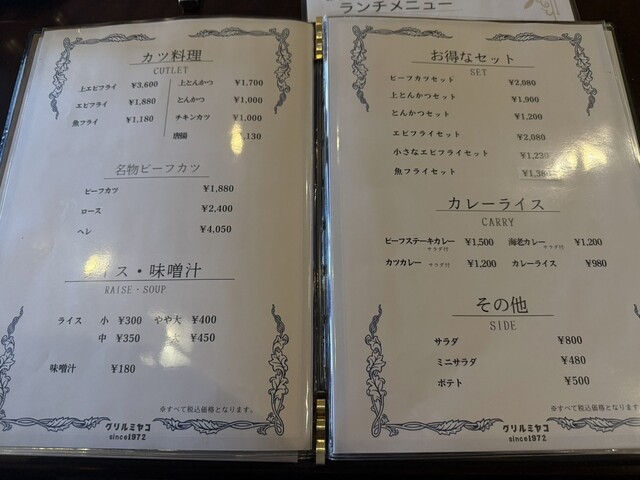 ランチメニュー
カツ料理
CUTLET
上エビフライ ¥3,600 上とんかつ ¥1,700
エビフライ ¥1,880 とんかつ ¥1,000
魚フライ ¥1,180 チキンカツ ¥1,000
唐揚 ,130
名物ビーフカツ
ビーフカツ ¥1,880
ロース ¥2,400
ヘレ ¥4,050
イス・味噌汁
RAISE・SOUP
ライス 小 ¥300 やや大 ¥400
中 ¥350 大 ¥450
味噌汁 ¥180
※すべて税込価格となります。
グリルミヤコ
since1972
お得なセット
SET
ビーフカツセット ¥2,080
上とんかつセット ¥1,900
とんかつセット ¥1,200
エビフライセット ¥2,080
小さなエビフライセット ¥1,230
魚フライセット ¥1,380
カレーライス
CARRY
ビーフステーキカレー サラダ付 ¥1,500 海老カレー サラダ付 ¥1,200
カツカレー サラダ付 ¥1,200 カレーライス ¥980
その他
SIDE
サラダ ¥800
ミニサラダ ¥480
ポテト ¥500
※すべて税込価格となります。
グリルミヤコ
since1972